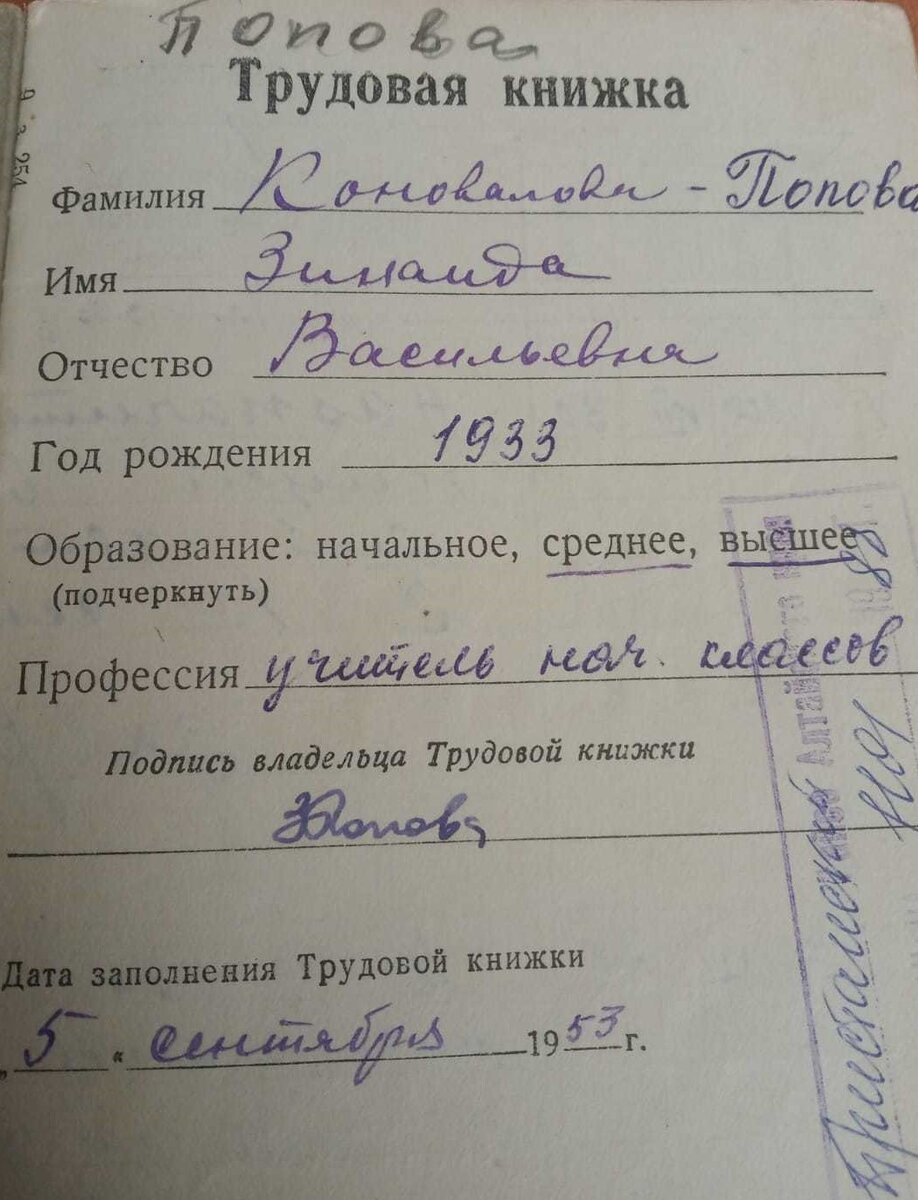 Попова
Трудовая книжка
Фамилия Коновалова - Попова
Имя Зинаида
Отчество Васильевна
Год рождения 1933
Образование: начальное, среднее, высшее
(подчеркнуть)
Профессия учитель нач. классов
Подпись владельца Трудовой книжки
ЗПопова
Дата заполнения Трудовой книжки
„ 5 “ сентября 1953 г.